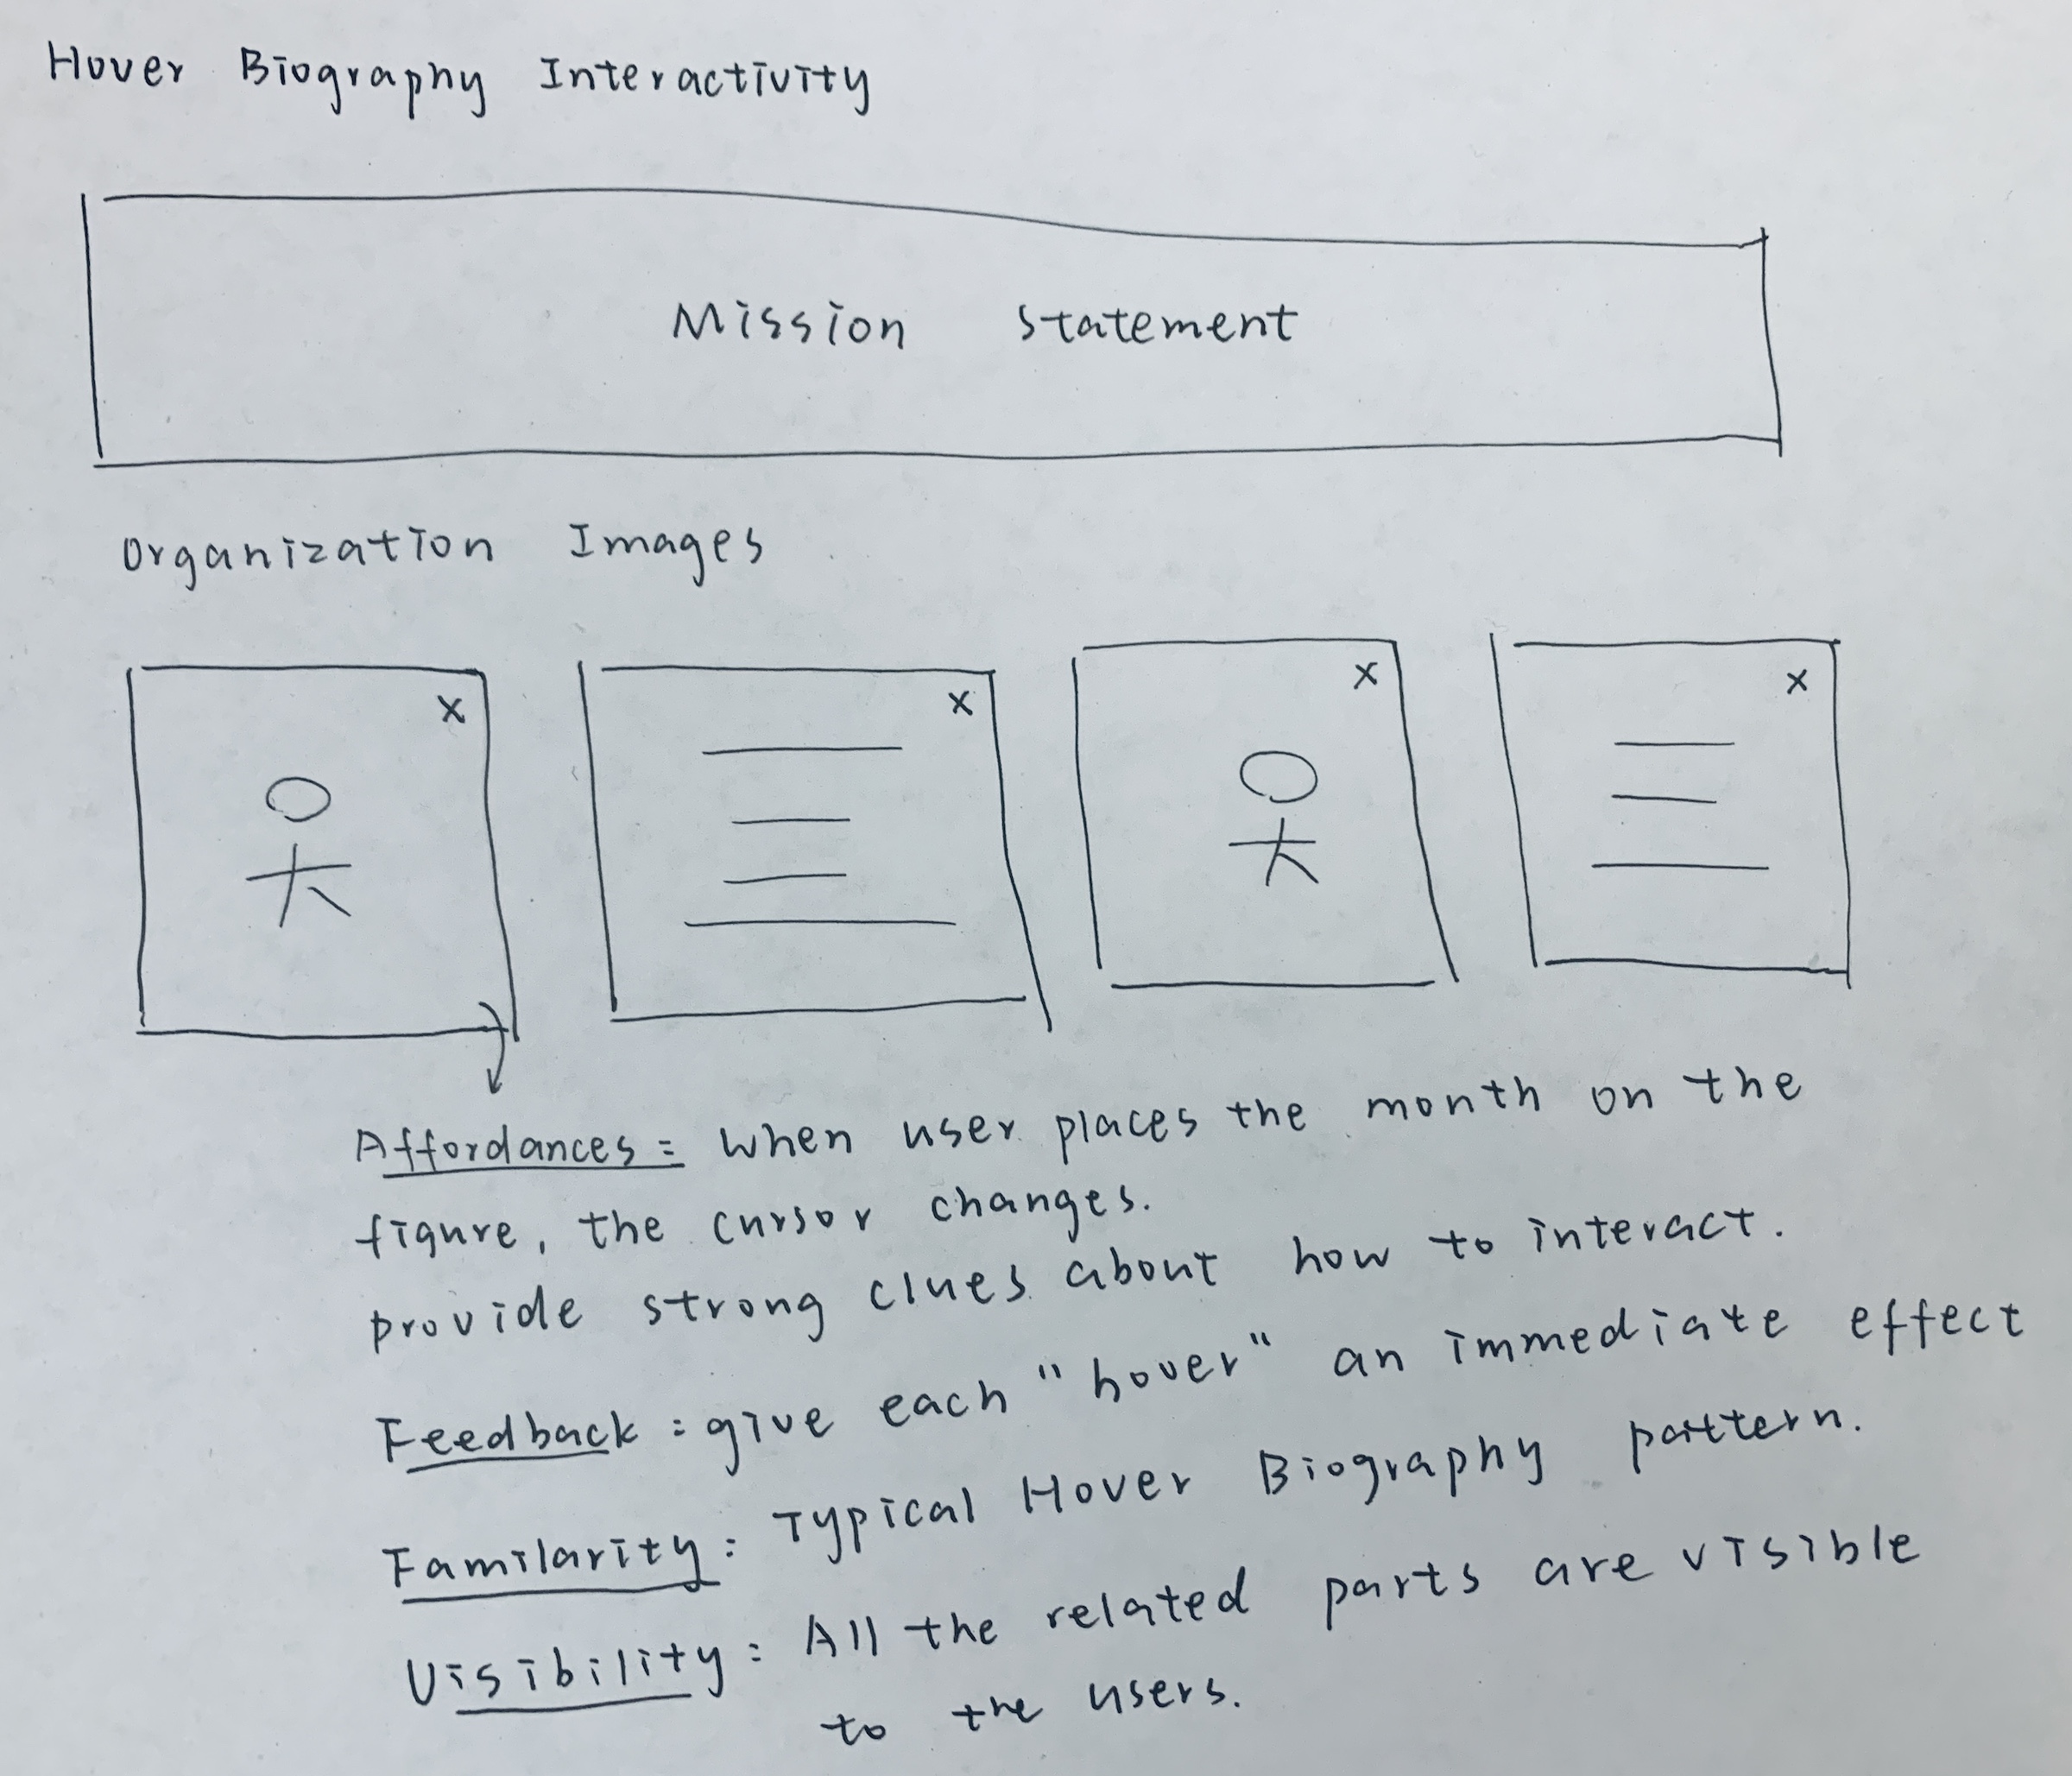 Hover Biography Interactivity
Mission Statement
Organization Images
X X X X
Affordances: When user places the month on the
figure, the cursor changes.
provide strong clues about how to interact.
Feedback: give each "hover" an immediate effect
Familarity: Typical Hover Biography pattern.
Visibility: All the related parts are visible
to the users.